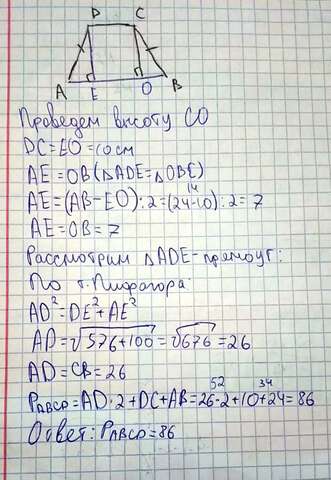 D C
A E O B
Проведем высоту CO
DC=EO=10см
AE=OB(△ADE=△OBC)
14
AE=(AB-EO):2=(24-10):2=7
AE=OB=7
Рассмотрим △ADE-прямоуг:
По т.Пифагора:
AD²=DE²+AE²
AD=√576+100=√676=26
AD=CB=26
52 34
PABCD=AD·2+DC+AB=26·2+10+24=86
Ответ: PABCD=86